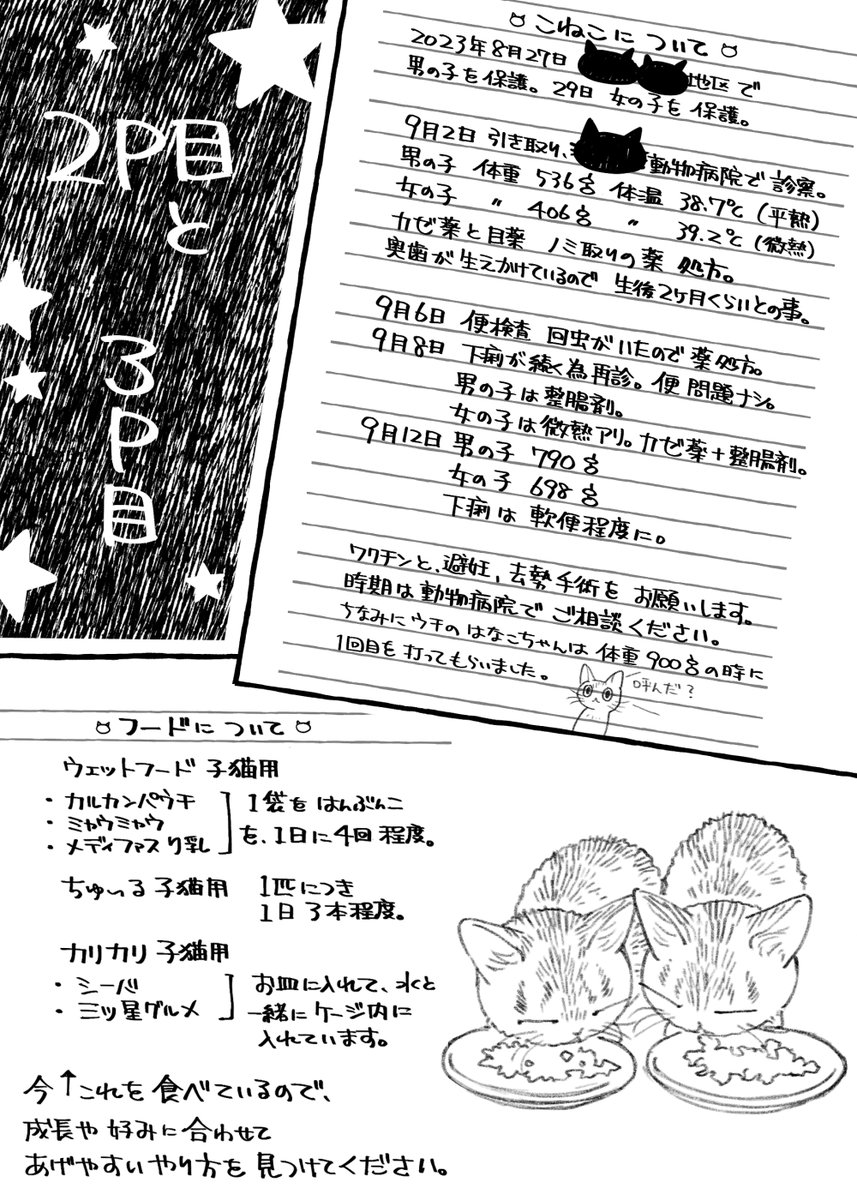 2P目
と
3P目
こねこについて
2023年8月27日 地区で
男の子を保護。29日 女の子を保護。
9月2日 引き取り、動物病院で診察。
男の子 体重 536g 体温 38.7℃(平熱)
女の子 〃 406g 〃 39.2℃(微熱)
カゼ薬と目薬 ノミ取りの薬 処方。
奥歯が生えかけているので 生後2ヶ月くらいとの事。
9月6日 便検査 回虫がいたので薬処方。
9月8日 下痢が続く為再診。便 問題ナシ。
男の子は整腸剤。
女の子は微熱アリ。カゼ薬+整腸剤。
9月12日 男の子 790g
女の子 698g
下痢は 軟便程度に。
ワクチンと、避妊、去勢手術を お願いします。
時期は動物病院で ご相談ください。
ちなみに ウチの はなこちゃんは 体重900gの時に
1回目を打ってもらいました。
呼んだ?
フードについて
ウェットフード 子猫用
・カルカンパウチ
・ミャウミャウ
・メディファスり乳
1袋を はんぶんこ
を、1日に4回程度。
ちゅ〜る 子猫用 1匹につき
1日 3本程度。
カリカリ 子猫用
・シーバ
・三ツ星グルメ
お皿に入れて、水と
一緒に ケージ内に
入れています。
今↑これを 食べているので、
成長や 好みに 合わせて
あげやすい やり方を 見つけてください。